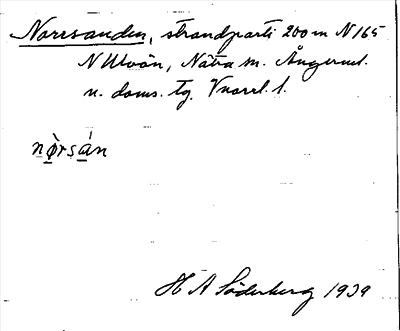 Norrsanden, strandparti 200 m N 165
N Ulvön, Nätra sn. Ångerml.
n. doms. tg. Vnorrl. l.
nòrsán
H A Söderberg 1939